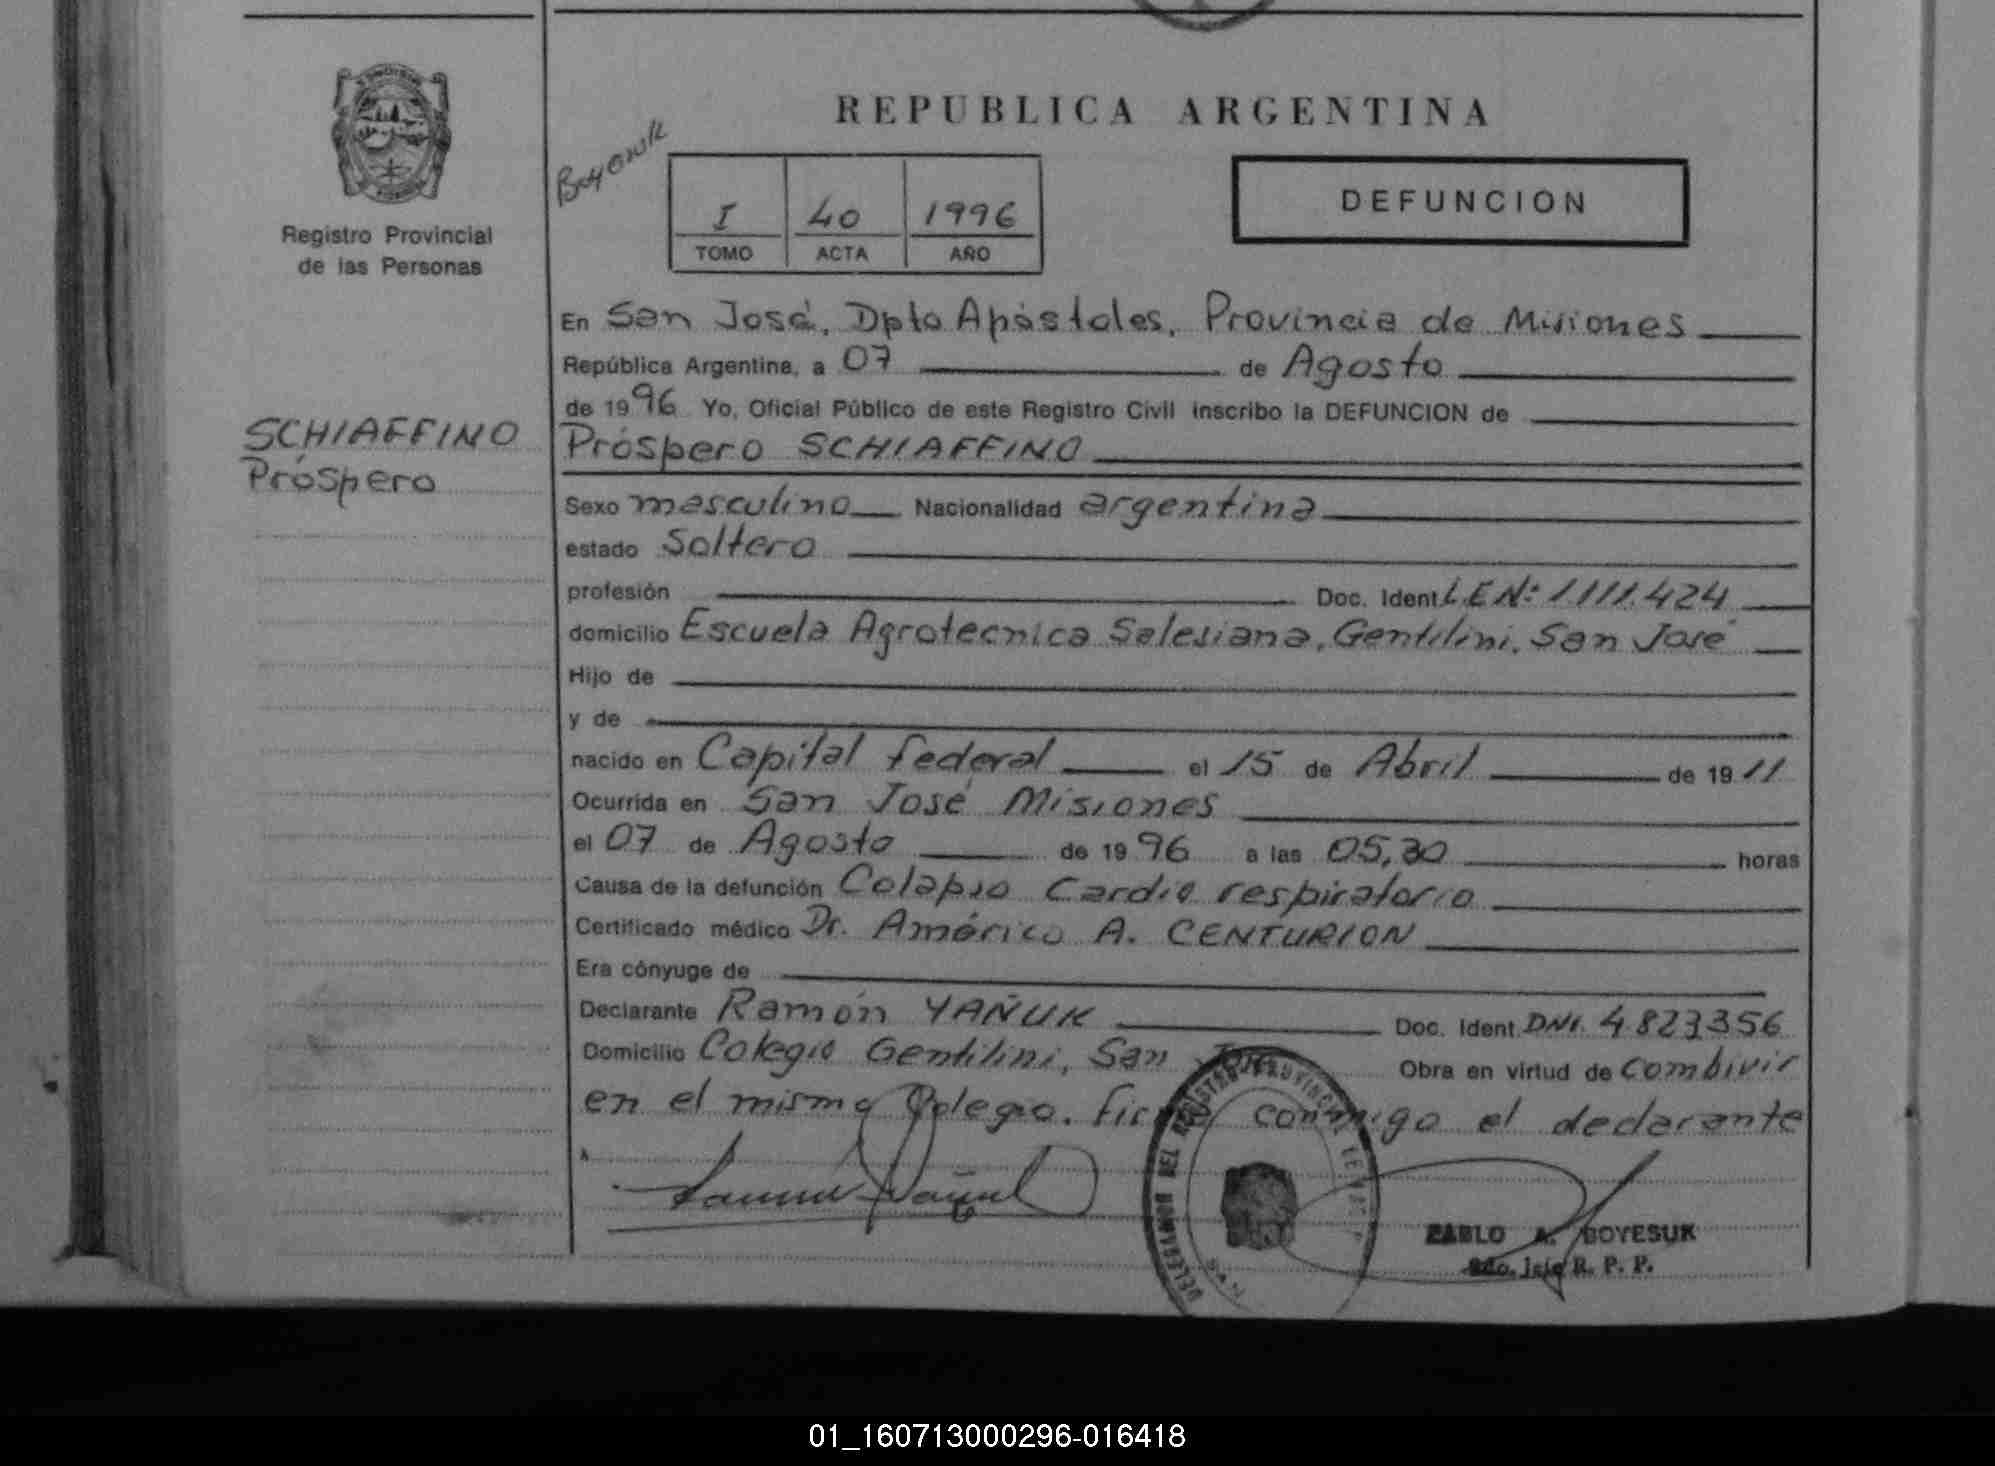 REPUBLICA ARGENTINA
DEFUNCION
I 40 1996
TOMO ACTA AÑO
Registro Provincial
de las Personas
SCHIAFFINO
Próspero
En San José, Dpto Apóstoles, Provincia de Misiones
República Argentina, a 07 de Agosto
de 1996 Yo, Oficial Público de este Registro Civil inscribo la DEFUNCION de
Próspero SCHIAFFINO
Sexo masculino Nacionalidad argentina
estado Soltero
profesión Doc. Ident. L.E Nº: 1.111.424
domicilio Escuela Agrotecnica Salesiana, Gentilini, San José
Hijo de
y de
nacido en Capital federal el 15 de Abril de 1911
Ocurrida en San José Misiones
el 07 de Agosto de 1996 a las 05,30 horas
Causa de la defunción Colapso Cardio respiratorio
Certificado médico Dr. Américo A. CENTURION
Era cónyuge de
Declarante Ramón YAÑUK Doc. Ident. DNI. 4823356
Domicilio Colegio Gentilini, San José Obra en virtud de Combivir
en el mismo Colegio. Firma conmigo el declarante
PABLO A. BOYESUK
R. P. P.
01_160713000296-016418